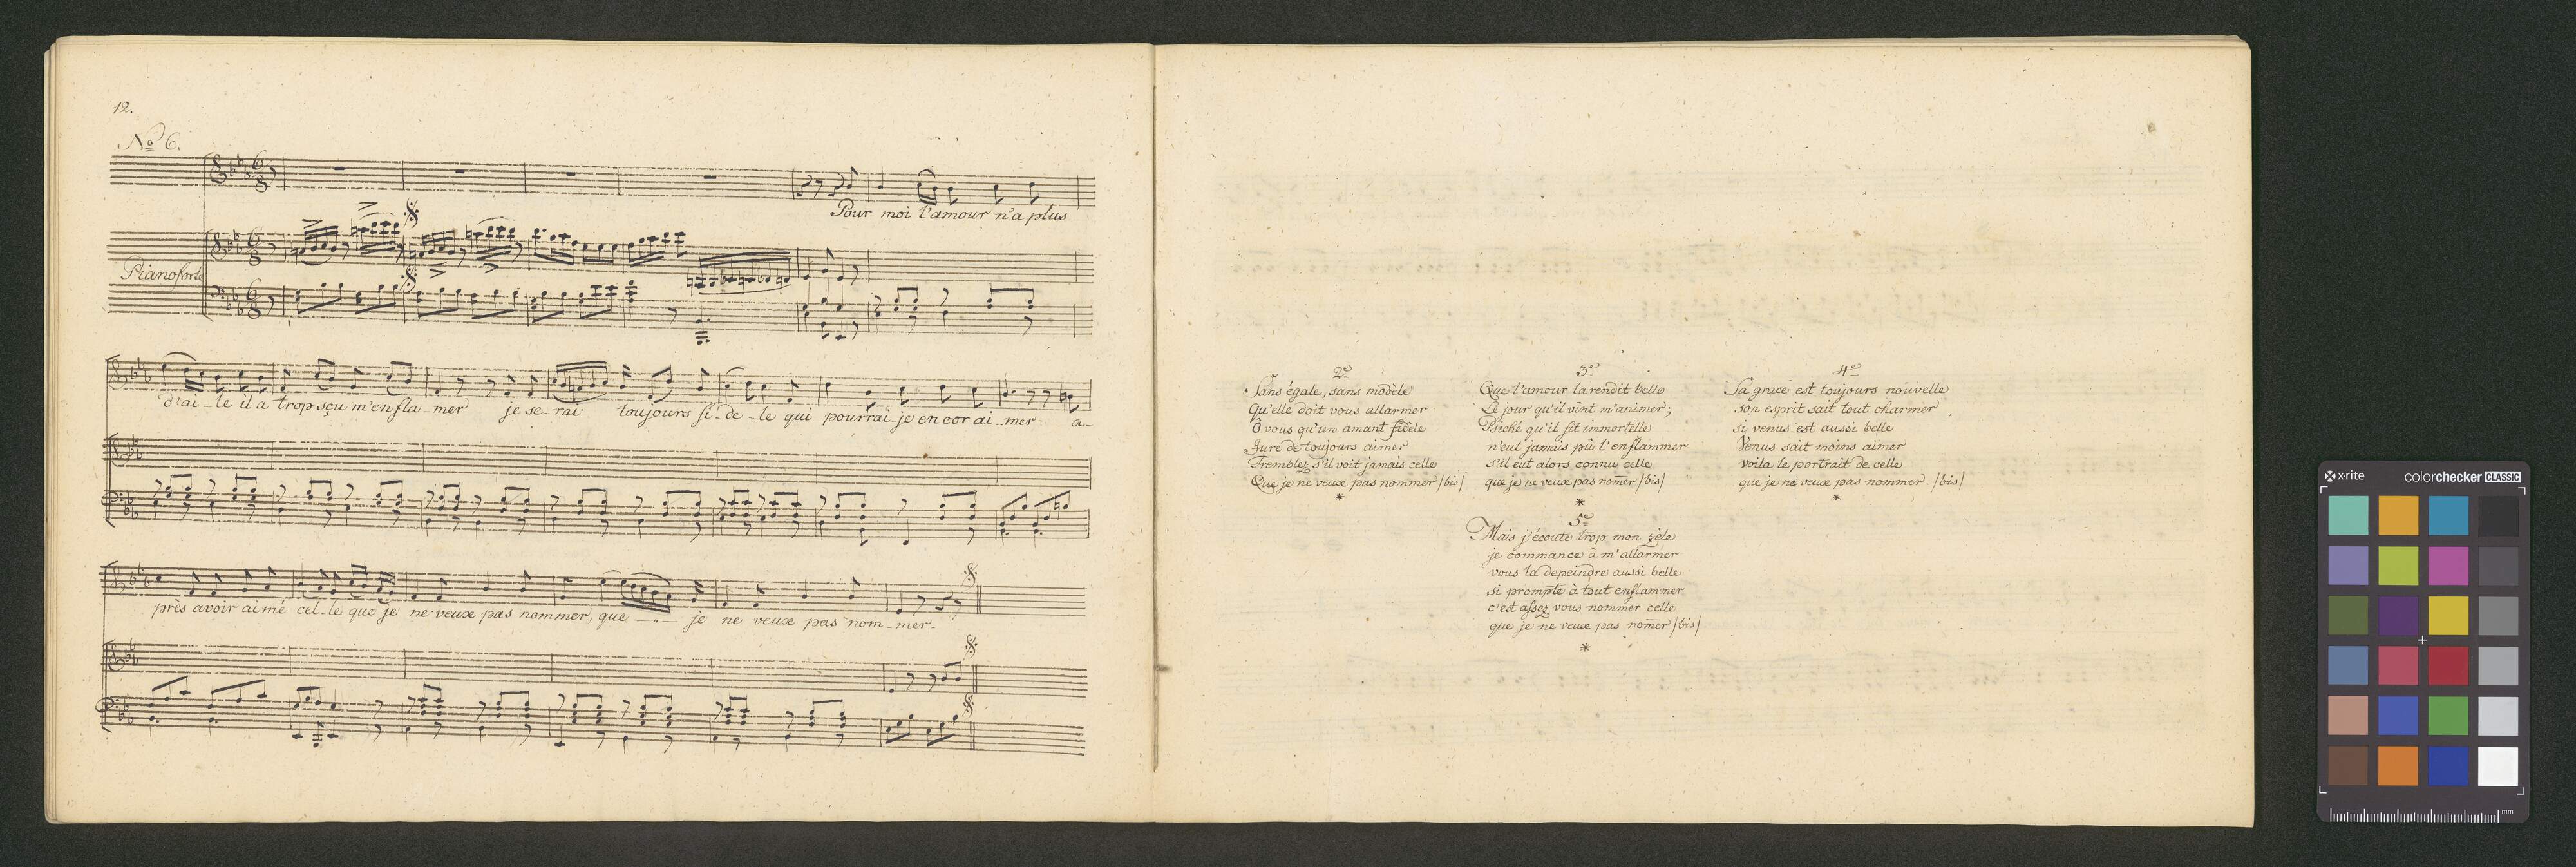 12.
No 6.
Pour moi l'amour n'a plus
Pianoforte
d'ai_le il a trop sçu m'enfla_mer je se_rai toujours fi_de_le qui pourrai_je encor ai_mer a_
près avoir aimé cel_le que je ne veux pas nommer, que _ .. _ je ne veux pas nom_mer.
2e
Sans égale, sans modèle
Qu'elle doit vous allarmer
O vous qu'un amant fidele
Jure de toujours aimer
Tremblez s'il voit jamais celle
Que je ne veux pas nommer /bis/
*
3e
Que l'amour la rendit belle
Le jour qu'il vint m'animer;
Psiché qu'il fit immortelle
n'eut jamais pû l'enflammer
s'il eut alors connu celle
que je ne veux pas nom̅er /bis/
*
4e
Sa grace est toujours nouvelle
son esprit sait tout charmer
si venus est aussi belle
Venus sait moins aimer
voila le portrait de celle
que je ne veux pas nommer. /bis/
*
5e
Mais j'écoute trop mon zèle
je commance à m'allarmer
vous la depeindre aussi belle
si prompte à tout enflammer
c'est assez vous nommer celle
que je ne veux pas nom̅er /bis/
*
xrite colorchecker CLASSIC
mm